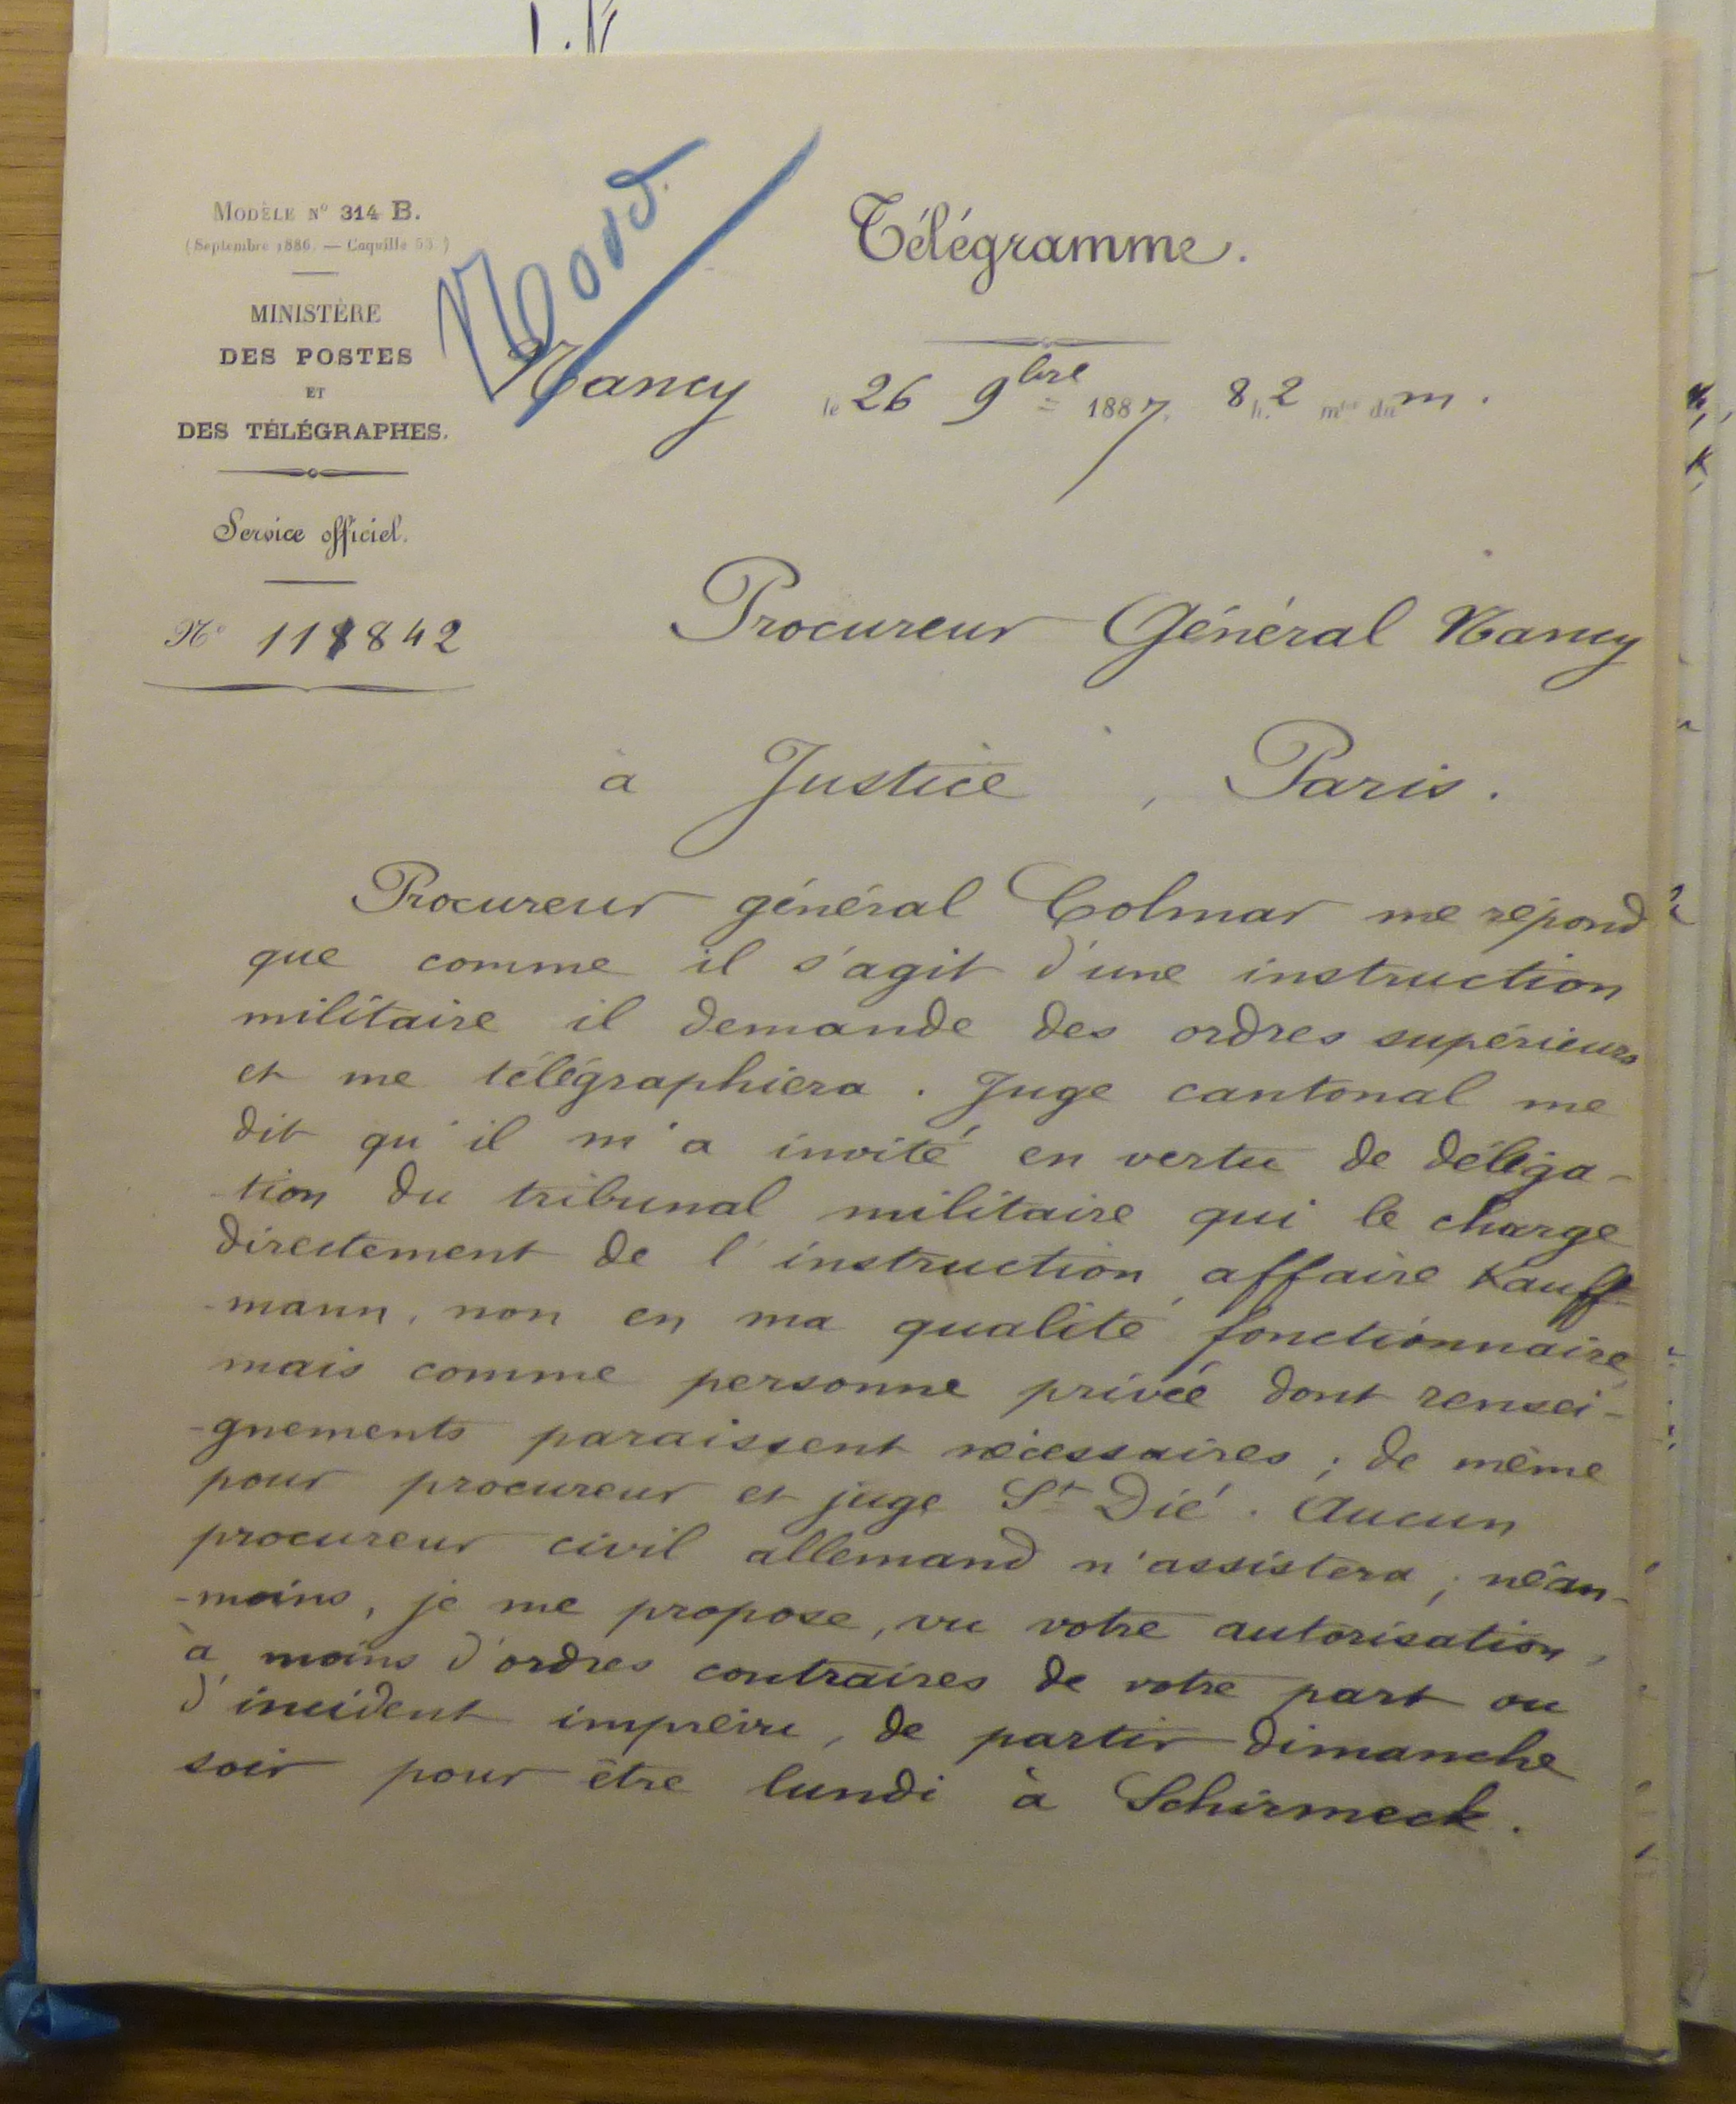 Modèle N° 314 B.
(Septembre 1886. — Coquille 53)
MINISTÈRE
DES POSTES
ET
DES TÉLÉGRAPHES.
Service officiel.
N° 118842
Télégramme.
Nancy le 26 9bre 1887, 8 h. 2 mtes du m.
Procureur Général Nancy
à Justice, Paris.
Procureur général Colmar me répond
que comme il s'agit d'une instruction
militaire il demande des ordres supérieurs
et me télégraphiera. Juge cantonal me
dit qu'il m'a invité en vertu de déléga-
-tion du tribunal militaire qui le charge
directement de l'instruction affaire Kauff-
-mann, non en ma qualité fonctionnaire,
mais comme personne privée dont rensei-
-gnements paraissent nécessaires; de même
pour procureur et juge St Dié. Aucun
procureur civil allemand n'assistera; néan-
-moins, je me propose, vu votre autorisation,
à moins d'ordres contraires de votre part ou
d'incident imprévu, de partir dimanche
soir pour être lundi à Schirmeck.